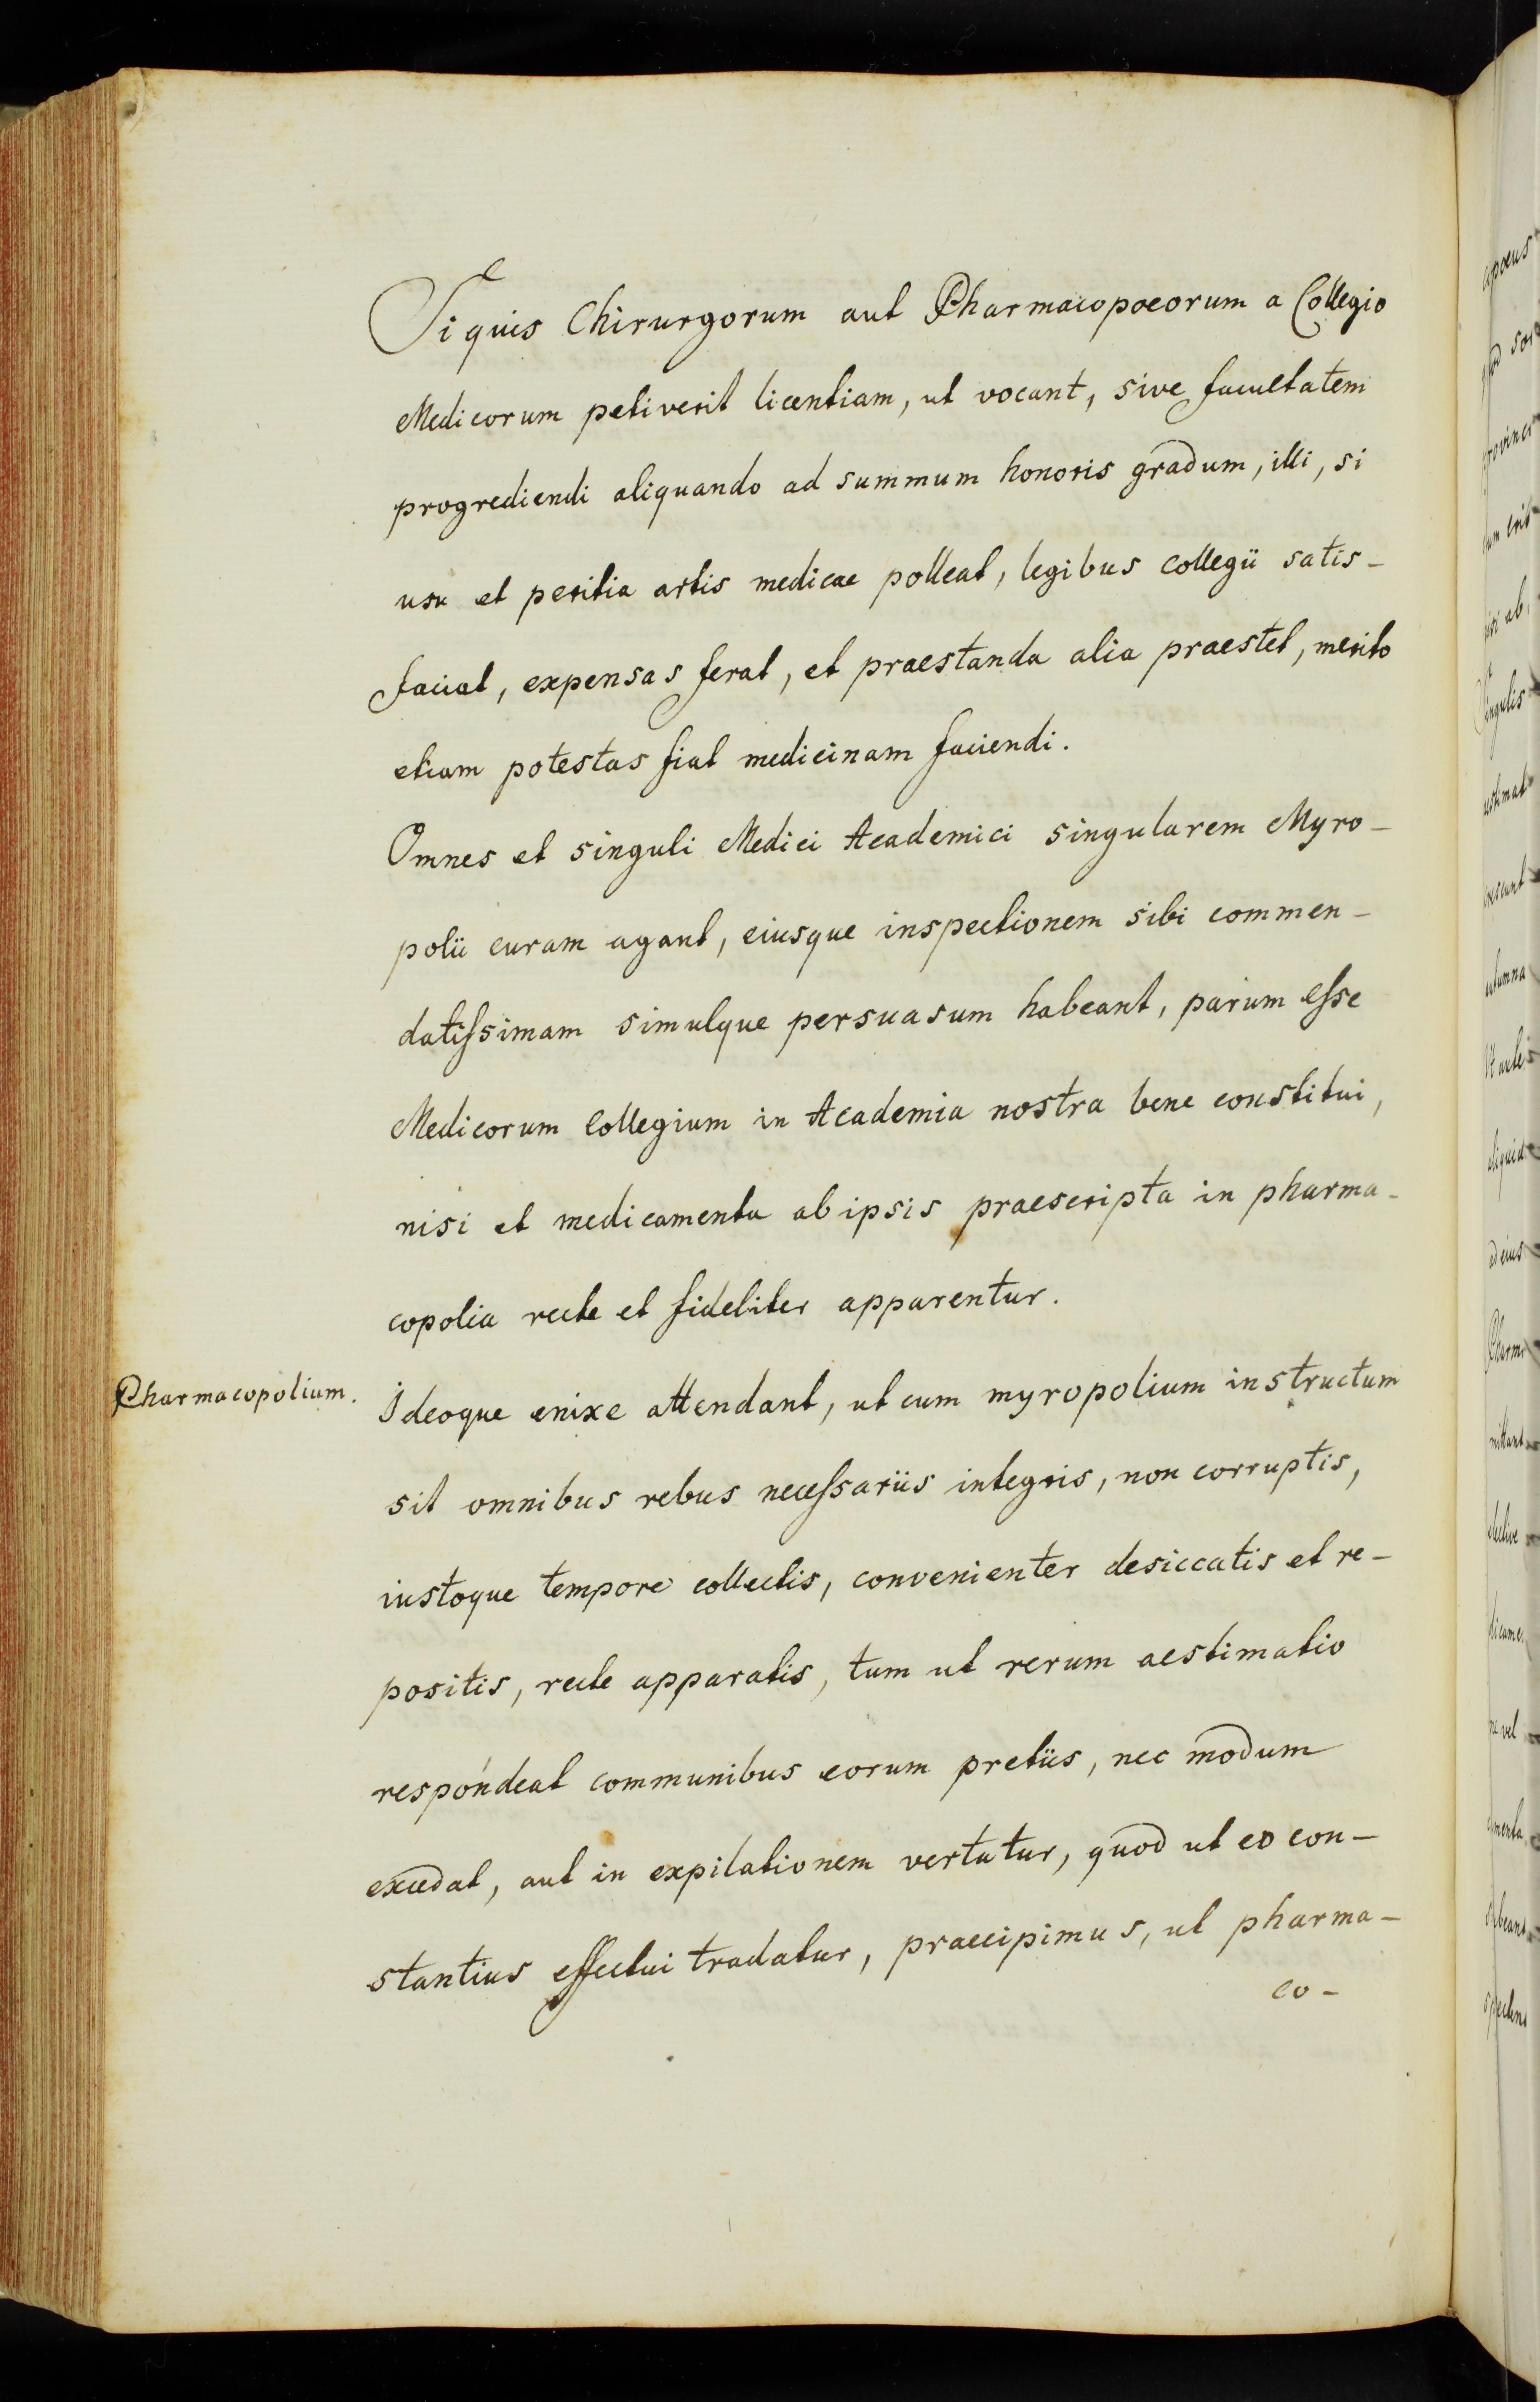 Si quis Chirurgorum aut Pharmacopoeorum a Collegio
Medicorum petiverit licentiam, ut vocant, sive facultatem
progrediendi aliquando ad summum honoris gradum, illi, si
usu et peritia artis medicae polleat, legibus collegii satis-
faciat, expensas ferat, et praestanda alia praestet, merito
etiam potestas fiat medicinam faciendi.
Omnes et singuli Medici Academici singularem Myro-
polii curam agant, eiusque inspectionem sibi commen-
datissimam simulque persuasum habeant, parum esse
Medicorum Collegium in Academia nostra bene constitui,
nisi et medicamenta ab ipsis praescripta in pharma-
copolia recte et fideliter apparentur.
Pharmacopolium.
Ideoque enixe attendant, ut cum myropolium instructum
sit omnibus rebus necessariis integris, non corruptis,
iustoque tempore collectis, convenienter desiccatis et re-
positis, recte apparatis, tum ut rerum aestimatio
respondeat communibus eorum pretiis, nec modum
excedat, aut in expilationem vertatur, quod ut eo con-
stantius effectui tradatur, praecipimus, ut pharma-
co-